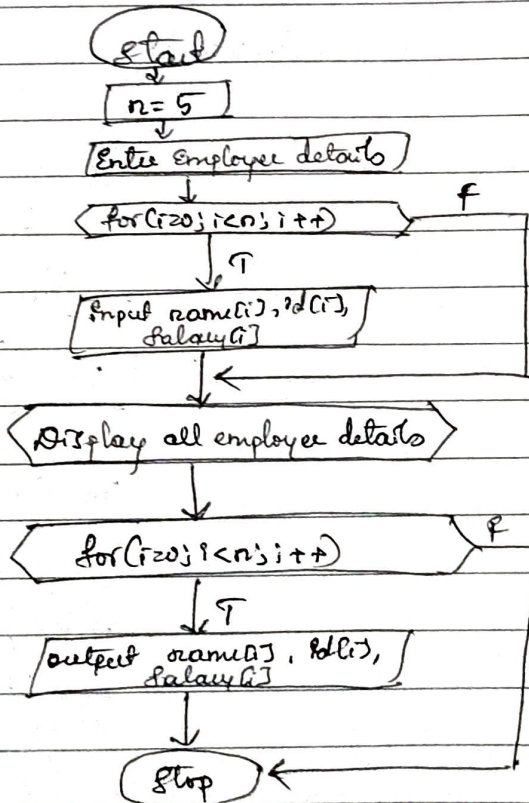 Start
n = 5
Enter Employee details
for(i=0; i<n; i++)
F
T
Input name[i], id[i],
Salary[i]
Display all employee details
for(i=0; i<n; i++)
F
T
output name[i], id[i],
Salary[i]
Stop